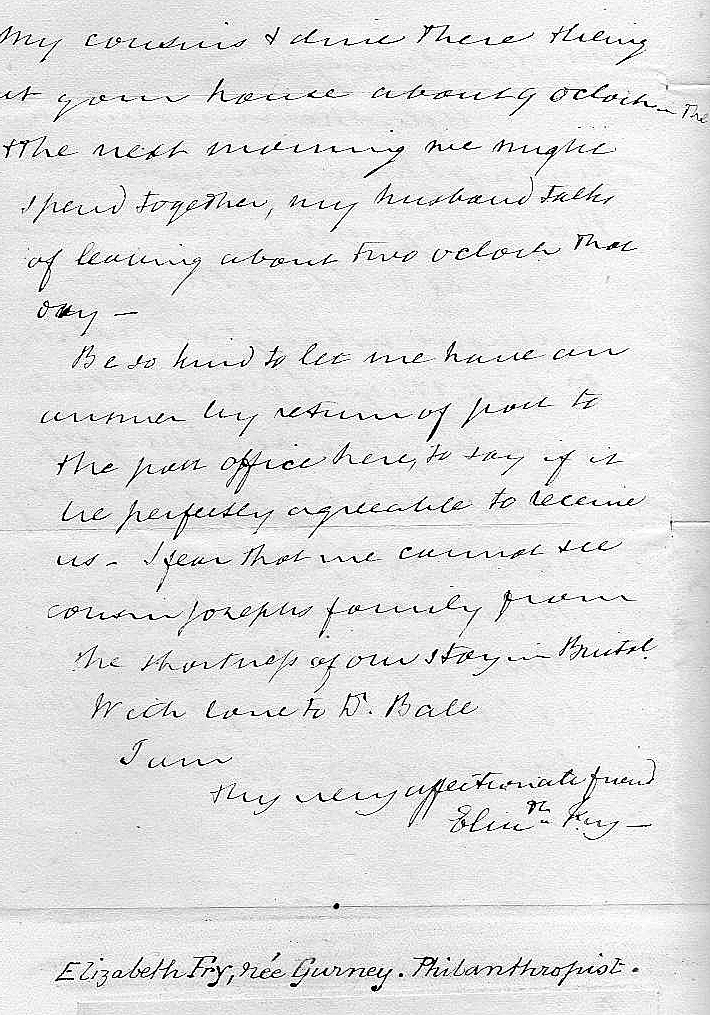 My cousins & dine there & being
at your house about 9 oclock in the
& the next morning we might
spend together, my husband talks
of leaving about two oclock that
day —
Be so kind to let me have an
answer by return of post to
the post office here, to say if it
be perfectly agreeable to receive
us - I fear that we cannot see
cousin Josephs family from
the shortness of our stay in Bristol.
With love to D. Ball
I am
thy very affectionate friend
Elizth Fry —
Elizabeth Fry, née Gurney. Philanthropist.